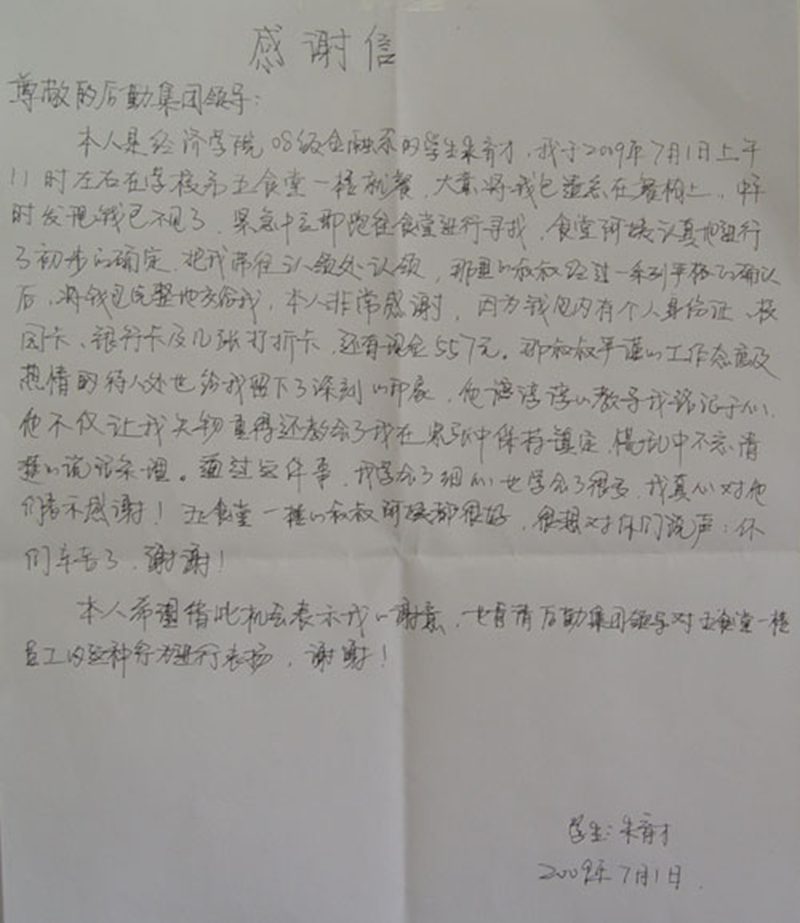 感谢信
尊敬的后勤集团领导:
本人是经济学院08级金融系的学生朱育才,我于2009年7月1日上午
11时左右在学校第五食堂一楼就餐,大意将钱包遗忘在餐桌上,中午
时发现钱包不见了,紧急中立即跑往食堂进行寻找,食堂阿姨认真地进行
了初步的确定,把我带往认领处认领,那里的叔叔经过一系列严格的确认
后,将钱包完整地交给我,本人非常感谢,因为钱包内有个人身份证、校
园卡、银行卡及几张打折卡,还有现金557元。那叔叔严谨的工作态度及
热情的待人处世给我留下了深刻的印象,他谆谆的教导我铭记于心,
他不仅让我失物重得还教会了我在紧张中保持镇定,慌乱中不忘清
楚的说话条理。通过这件事,我学会了细心也学会了很多,我真心对他
们表示感谢!五食堂一楼的叔叔阿姨都很好,很想对你们说声:你
们辛苦了,谢谢!
本人希望借此机会表示我的谢意,也肯请后勤集团领导对五食堂一楼
员工的这种行为进行表扬,谢谢!
学生:朱育才
2009年7月1日.